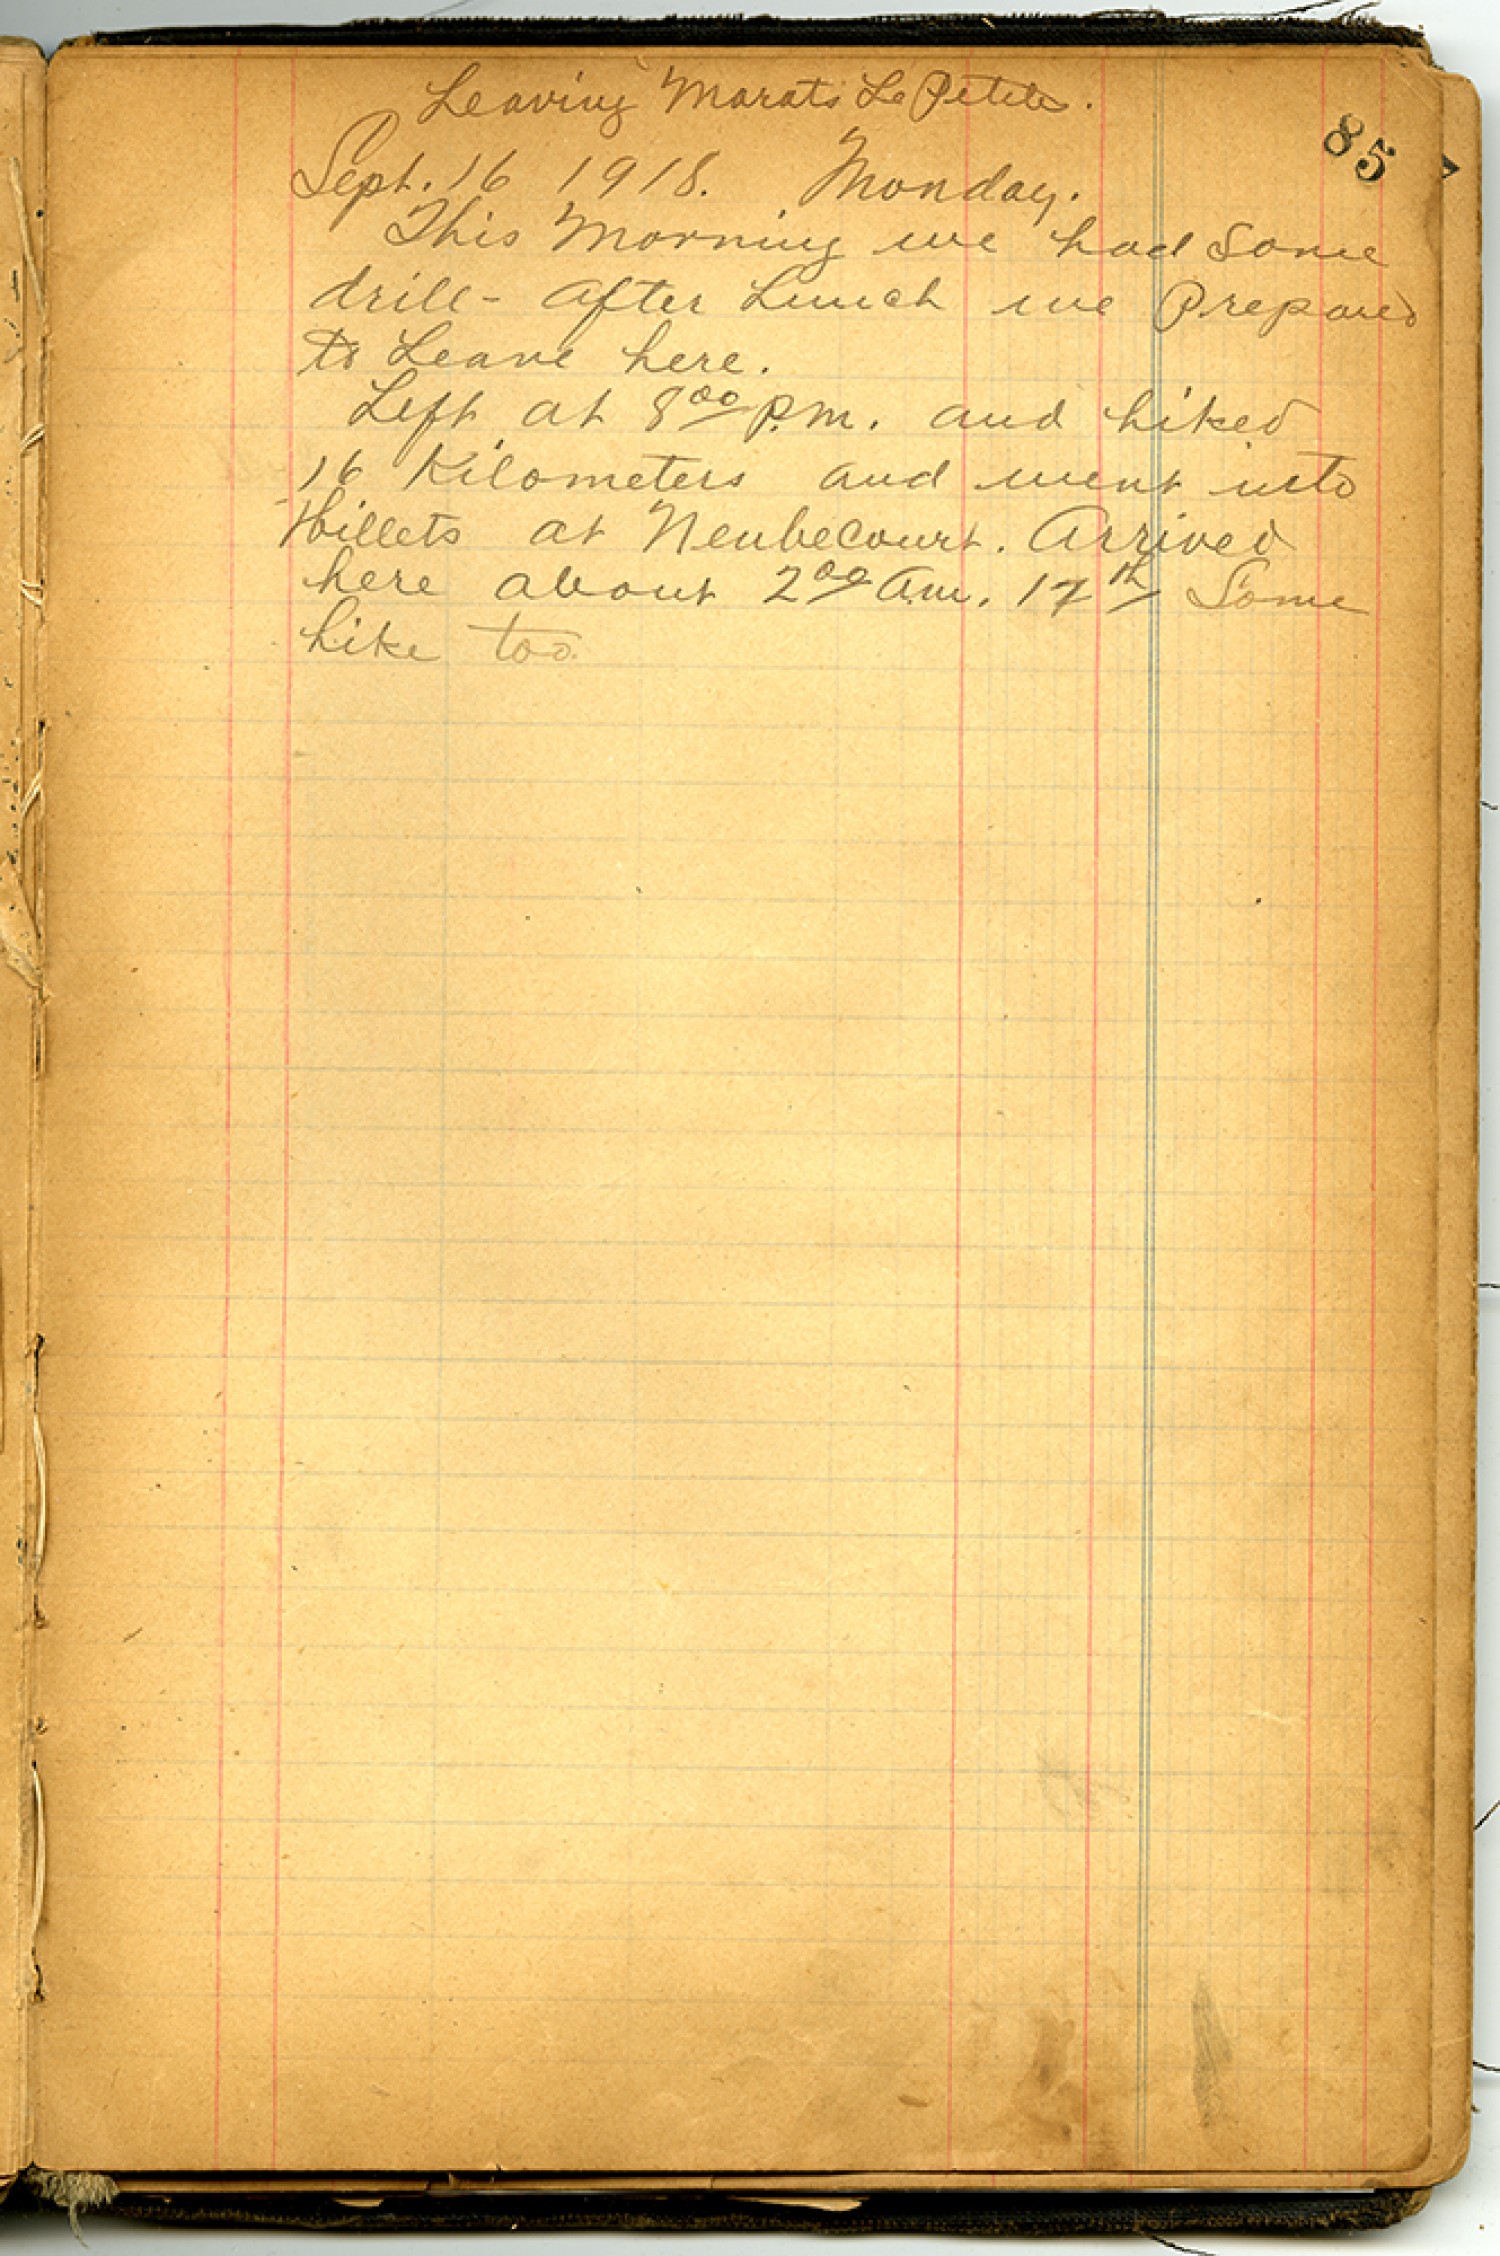 Leaving Marats Le Petite.
85
Sept. 16 1918. Monday.
This Morning we had Some
drill - after Lunch we Prepared
to Leave here.
Left at 8 00 P.M. and hiked
16 Kilometers and went into
Billets at Neubecourt. Arrived
here about 2 00 A.M. 17th Some
hike too.